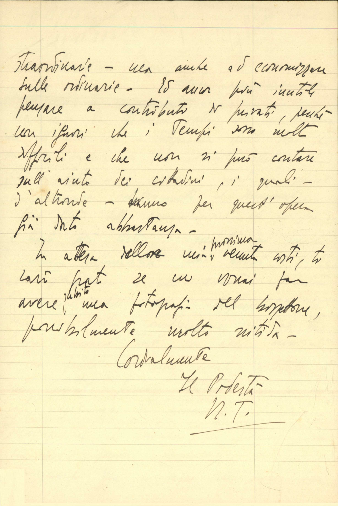 straordinarie – ma anche ad economizzare
sulle ordinarie – Ed ancor più inutile
pensare a contributi di privati, perché
non ignori che i tempi sono molto
difficili e che non si può contare
sull'aiuto dei cittadini, i quali –
d'altronde – hanno per quest'opera
già dato abbastanza –
In attesa della mia prossima venuta costì, ti
sarò grato se mi vorrai far
avere, subito, una fotografia del
possibilmente molto nitida –
Cordialmente
Il Podestà
N. T.